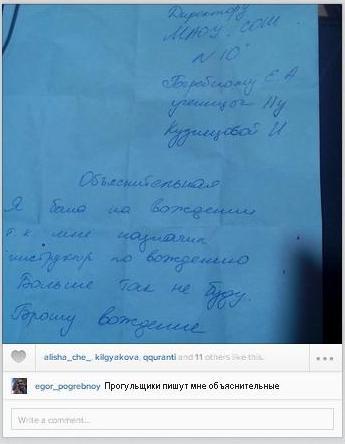 Директору
МАОУ СОШ
N 10
Погребному Е А
ученицы 11у
Кузнецовой И
Объяснительная
Я была на вождении
т.к. мне назначил
инструктор по вождению
Больше так не буду.
Брошу вождение
alisha_che_, kilgyakova, qquranti and 11 others like this.
egor_pogrebnoy Прогульщики пишут мне объяснительные
Write a comment...